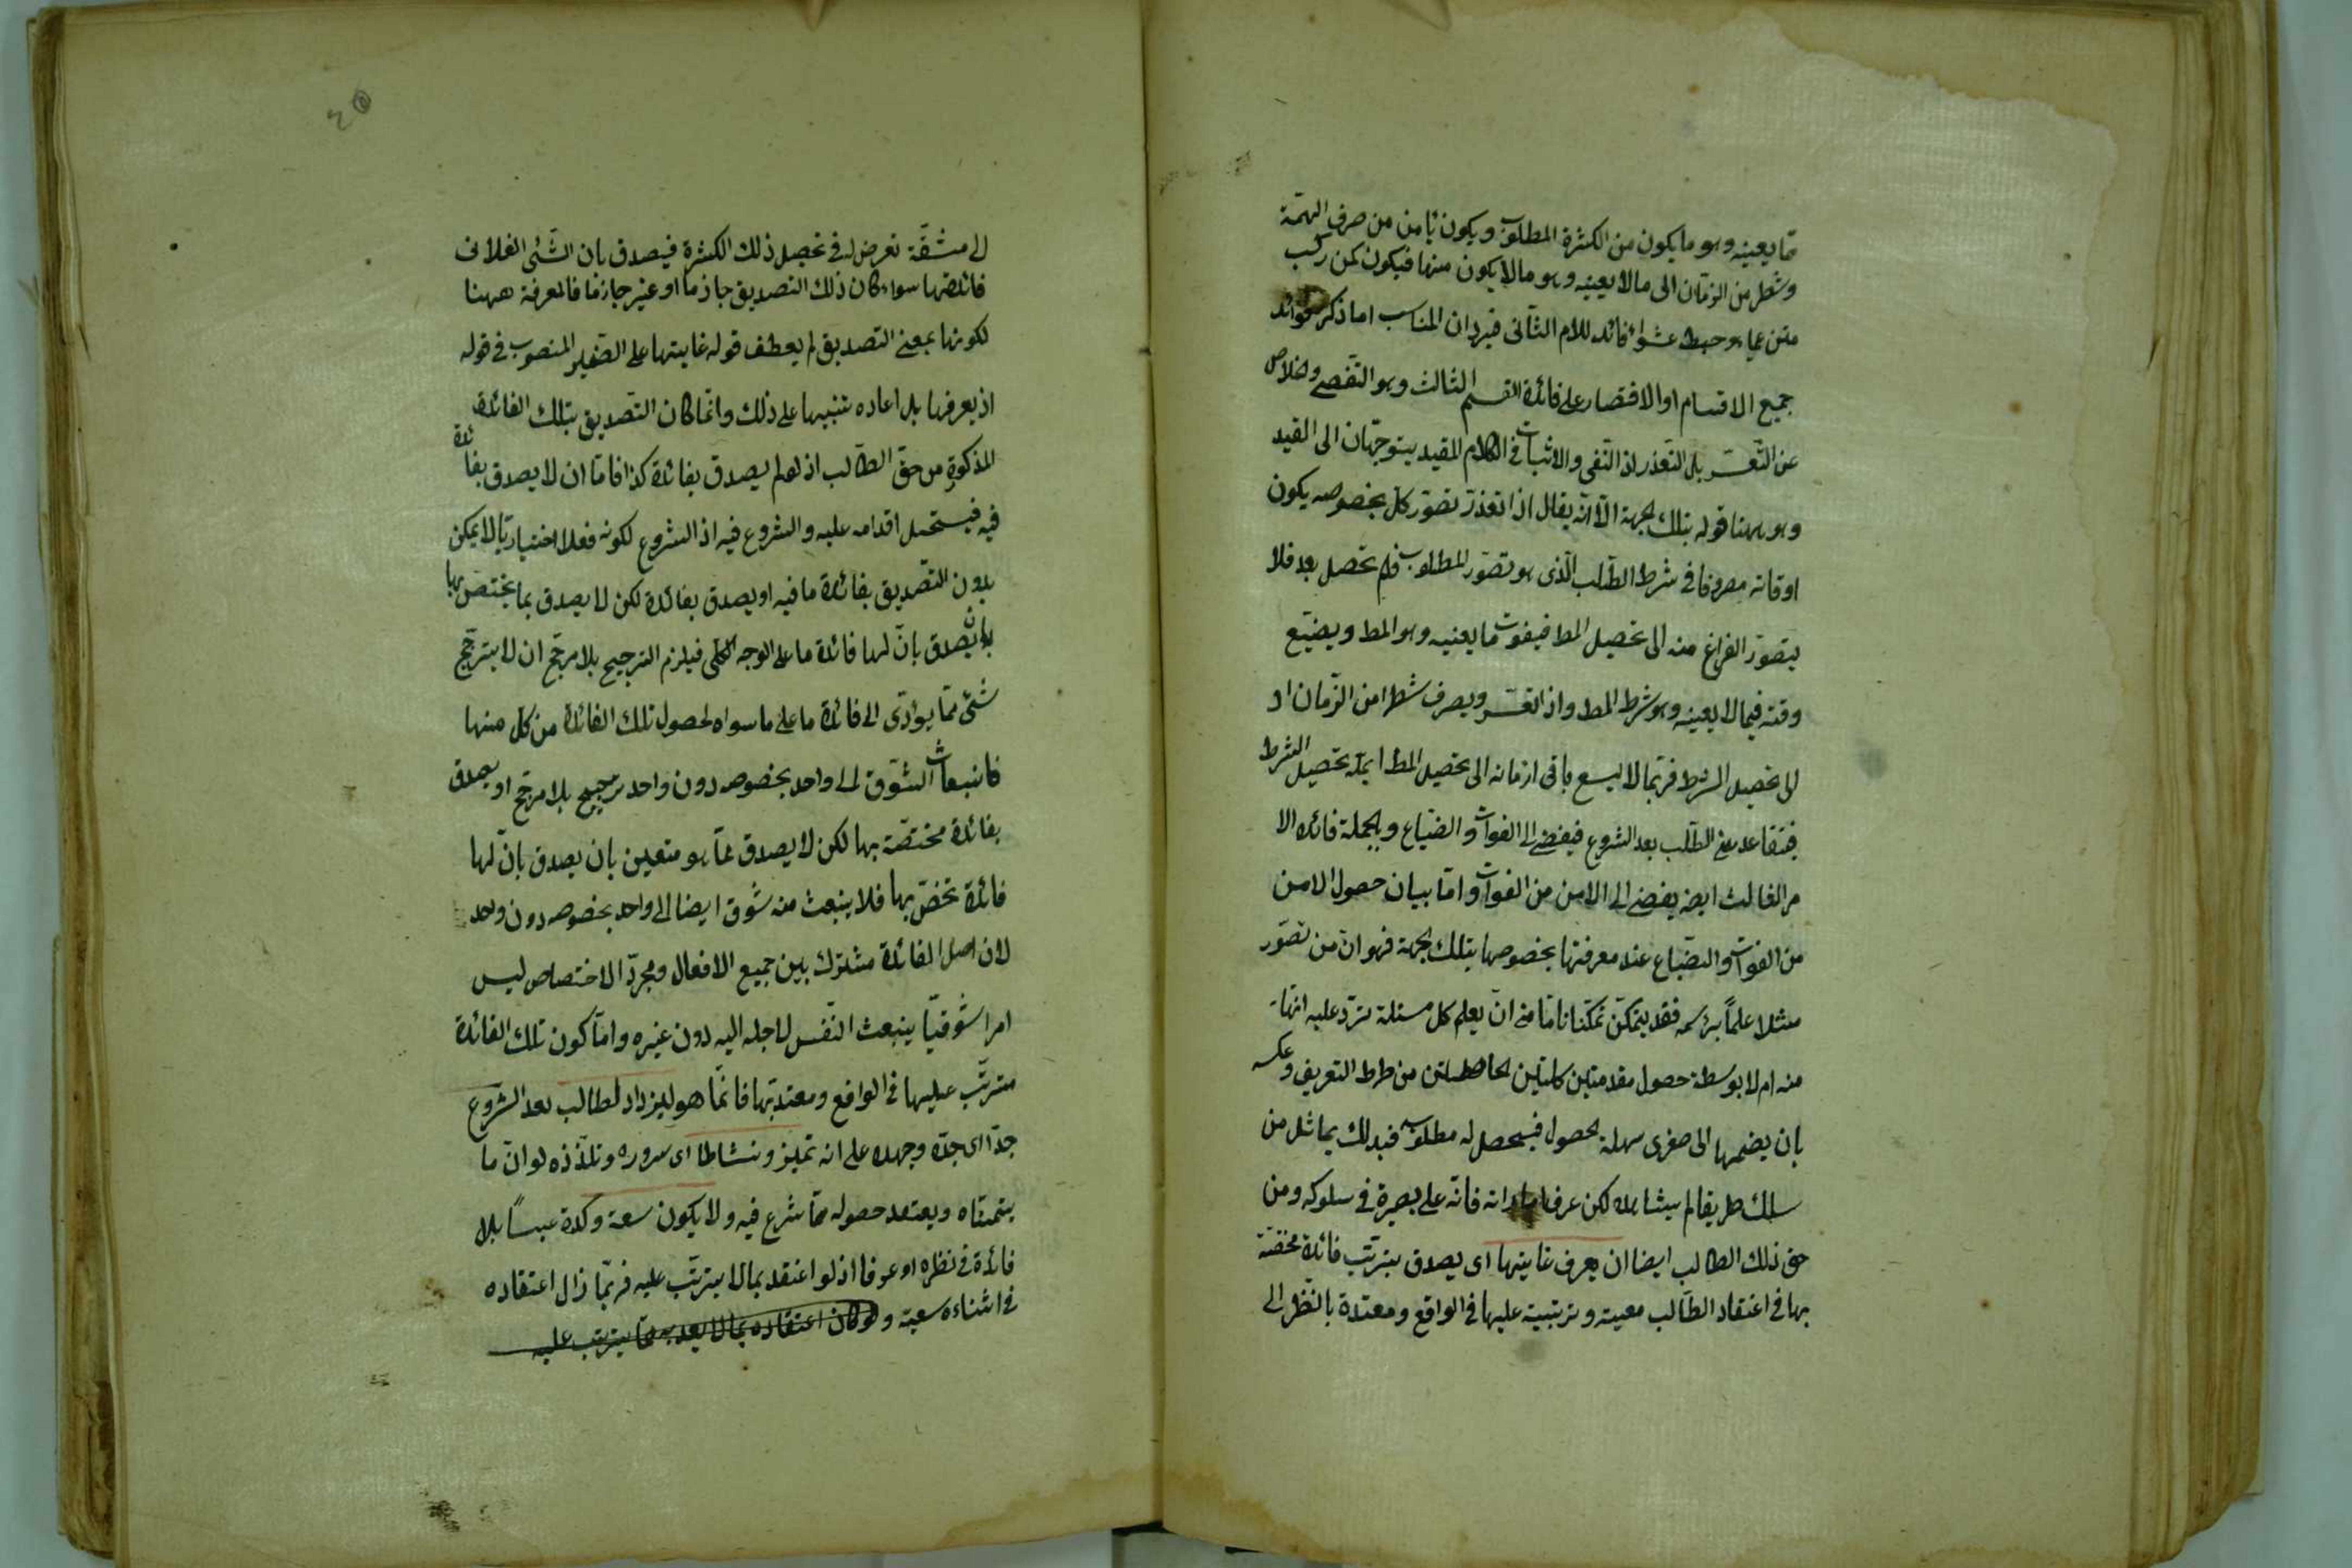 مّا يعينه وهو ما يكون من الكثرة المطلوب ويكون يأمن من صرف الهمّة
وشطر من الزمان الى ما لا يعينه وهو ما لا يكون منها فيكون كمن ركب
متن عمياء وخبط عشواء فائد للامر الثاني فيرد ان المناسب اما ذكر فوائد
جميع الاقسام او الاقتصار على فائدة القسم الثالث وهو التفصي وخلاص
عن التعسر بل التعذر اذ النفي والاثبات في الكلام المقيد يتوجهان الى القيد
وهو ههنا قوله بتلك الجهة الّا انّه يقال اذا تعذر تصوّر كل بخصوصه يكون
اوقاته مصروفا في شرط الطلب الّذي هو تصوّر المطلوب فلم تحصل بعد فلا
يتصوّر الفراغ منه الى تحصيل المط فيفوت ما يعنيه وهو المط ويضيّع
وقته فيما لا يعينه وهو شرط المط واذا تعسر ويصرف شطرا من الزّمان او
الى تحصيل الشرط فربّما لا يسع باقي ازمانه الى تحصيل المط تحصيل الشرط
فيتقاعد عن الطّلب بعد الشروع فيفضي الى الفوات والضياع وبالجملة فائدة الا
مر الثالث ايضه يفضي الى الامن من الفوات وامّا بيان حصول الامن
من الفوات والضّياع عند معرفتها بخصوصها بتلك الجهة فهو ان من تصوّر
مثلا علماً برسمه فقد يتمكّن تمكّنا تامّا من ان يعلم كل مسئلة ترد عليه انّها
منه ام لا بوسطة حصول مقدمتين كليتين من طرد التعريف وعكسه
بان يضمها الى صغرى سهلة الحصول فيحصل له مطلوبه فبذلك يماثل من
سلك طريقا لم يشاهده لكن عرف اماراته فانّه على بصيرة في سلوكه ومن
حق ذلك الطالب ايضا ان يعرف غايتها اى يصدق بترتّب فائدة مختصّة
بها في اعتقاد الطّالب معينة وترتيبة عليها في الواقع ومعتدة بالنّظر الى
الى مشقّة تعرض له في تحصيل ذلك الكثرة فيصدق بان الشّئ الفلانى
فائدتها سواء كان ذلك التصديق جازما او غير جازما فالمعرفة ههنا
لكونها بمعنى التصديق لم يعطف قوله غايتها على الضمير المنصوب في قوله
اذ يعرفها بل اعاده تنبيها على ذلك وانّما كان التصديق بتلك الفائدة
المذكورة من حقّ الطّالب اذ لو لم يصدق بفائدة كذا فامّا ان لا يصدق بفائدة
فيه فيستحيل اقدامه عليه والشروع فيه اذ الشروع لكونه فعلا اختياريّا لا يمكن
بدون التّصديق بفائدة ما فيه او يصدق بفائدة لكن لا يصدق بما يختصّ بها
بان يصدق بانّ لها فائدة ما على الوجه الكلّى فيلزم الترجيح بلا مرجّح ان لا يترجّح
شئ ممّا يؤدّى الى فائدة ما على ما سواه لحصول تلك الفائدة من كل منها
فانبعاث الشّوق الى واحد بخصوصه دون واحد ترجيح بلا مرجّح او يصدق
بفائدة مختصّة بها لكن لا يصدق بما هو متعين بان يصدق بانّ لها
فائدة تخصّ بها فلا ينبعث منه شوق ايضا الى واحد بخصوصه دون واحد
لان اصل الفائدة مشترك بين جميع الافعال ومجرّد الاختصاص ليس
امرا شوقيّا ينبعث النّفس لاجله اليه دون غيره وامّا كون تلك الفائدة
مترتّب عليها في الواقع ومعتدّ بها فانّما هو ليزداد لطالب بعد الشروع
جدّا اى جدّه وجهده على انه تميز ونشاطا اى سروره وتلذّذه لو انّ ما
يتمنّاه ويعتمد حصوله ممّا شرع فيه ولا يكون سعيه وكدّه عبثاً بلا
فائدة في نظره او عرفا اذ لو اعتقد بما لا يترتّب عليه فربّما زال اعتقاده
في اثناء سعيه ولو كان اعتقاده بما لا يعتد به ممّا يترتب عليه